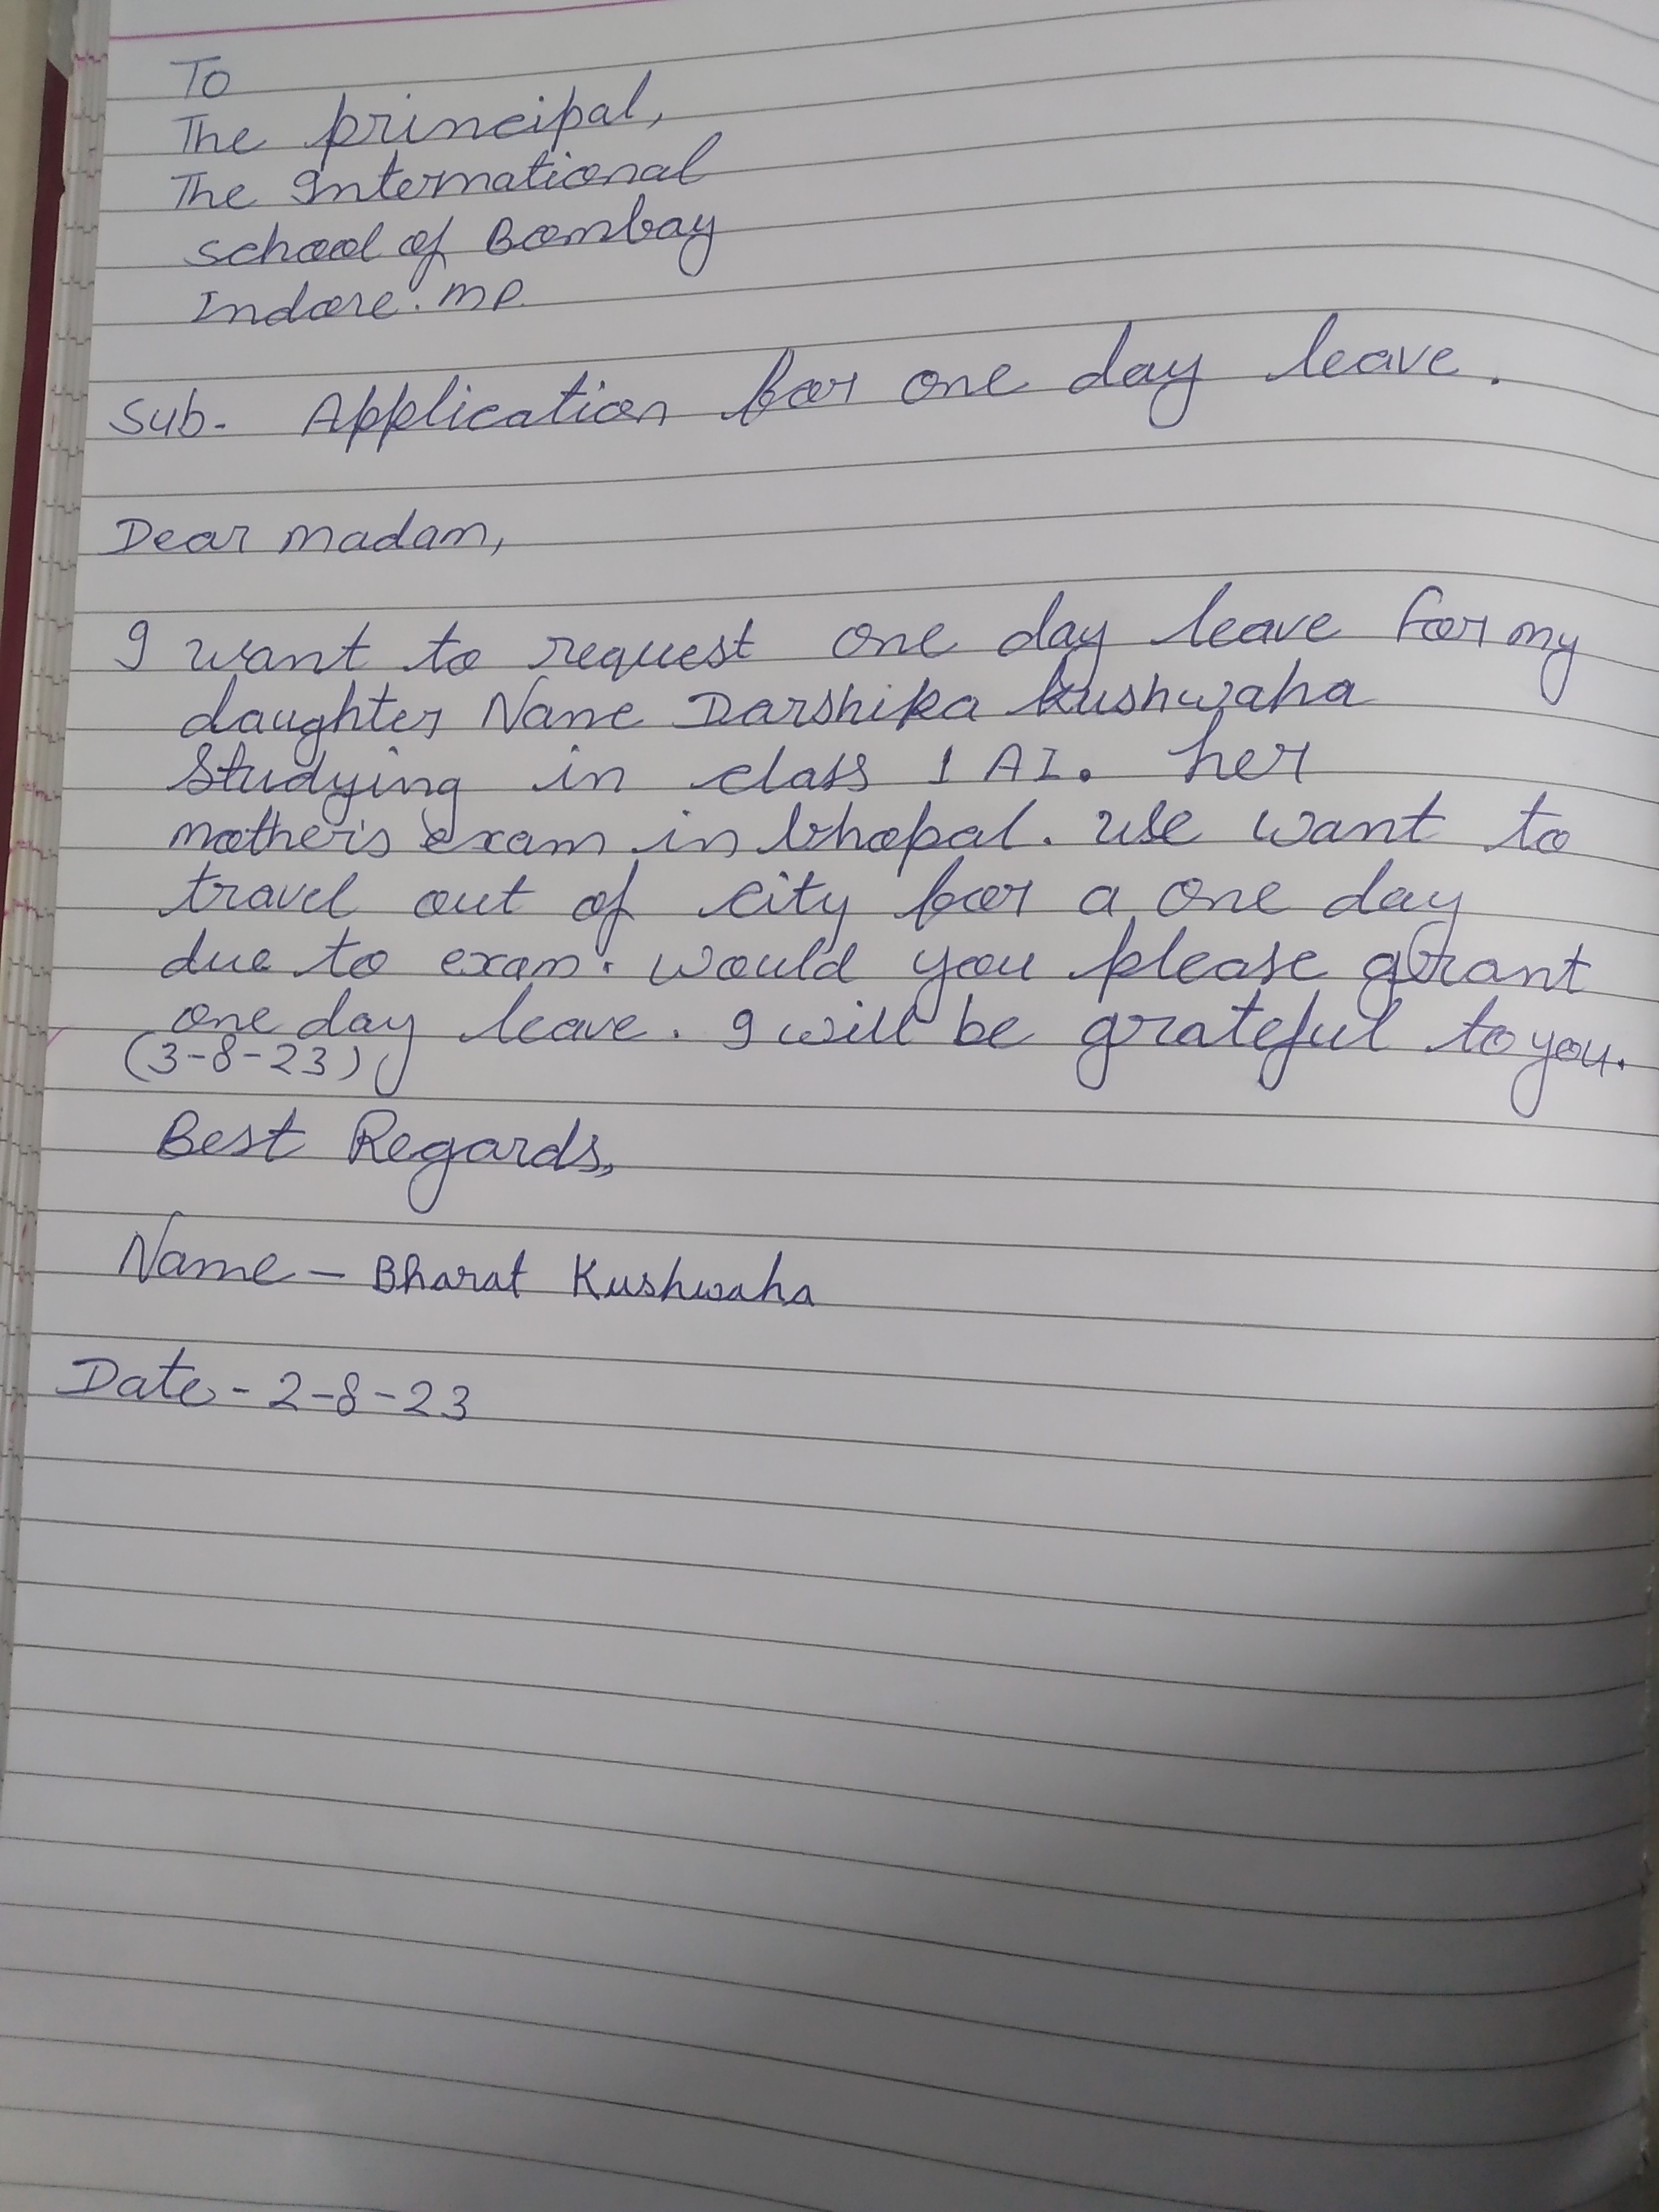 To
The principal,
The International
school of Bombay
Indore. MP.
Sub- Application for one day leave.
Dear madam,
I want to request one day leave for my
daughter Name Darshika Kushwaha
Studying in class 1 AI. her
mother's exam in bhopal. We want to
travel out of city for a one day
due to exam. would you please grant
one day leave. I will be grateful to you.
(3-8-23)
Best Regards,
Name - Bharat Kushwaha
Date - 2-8-23